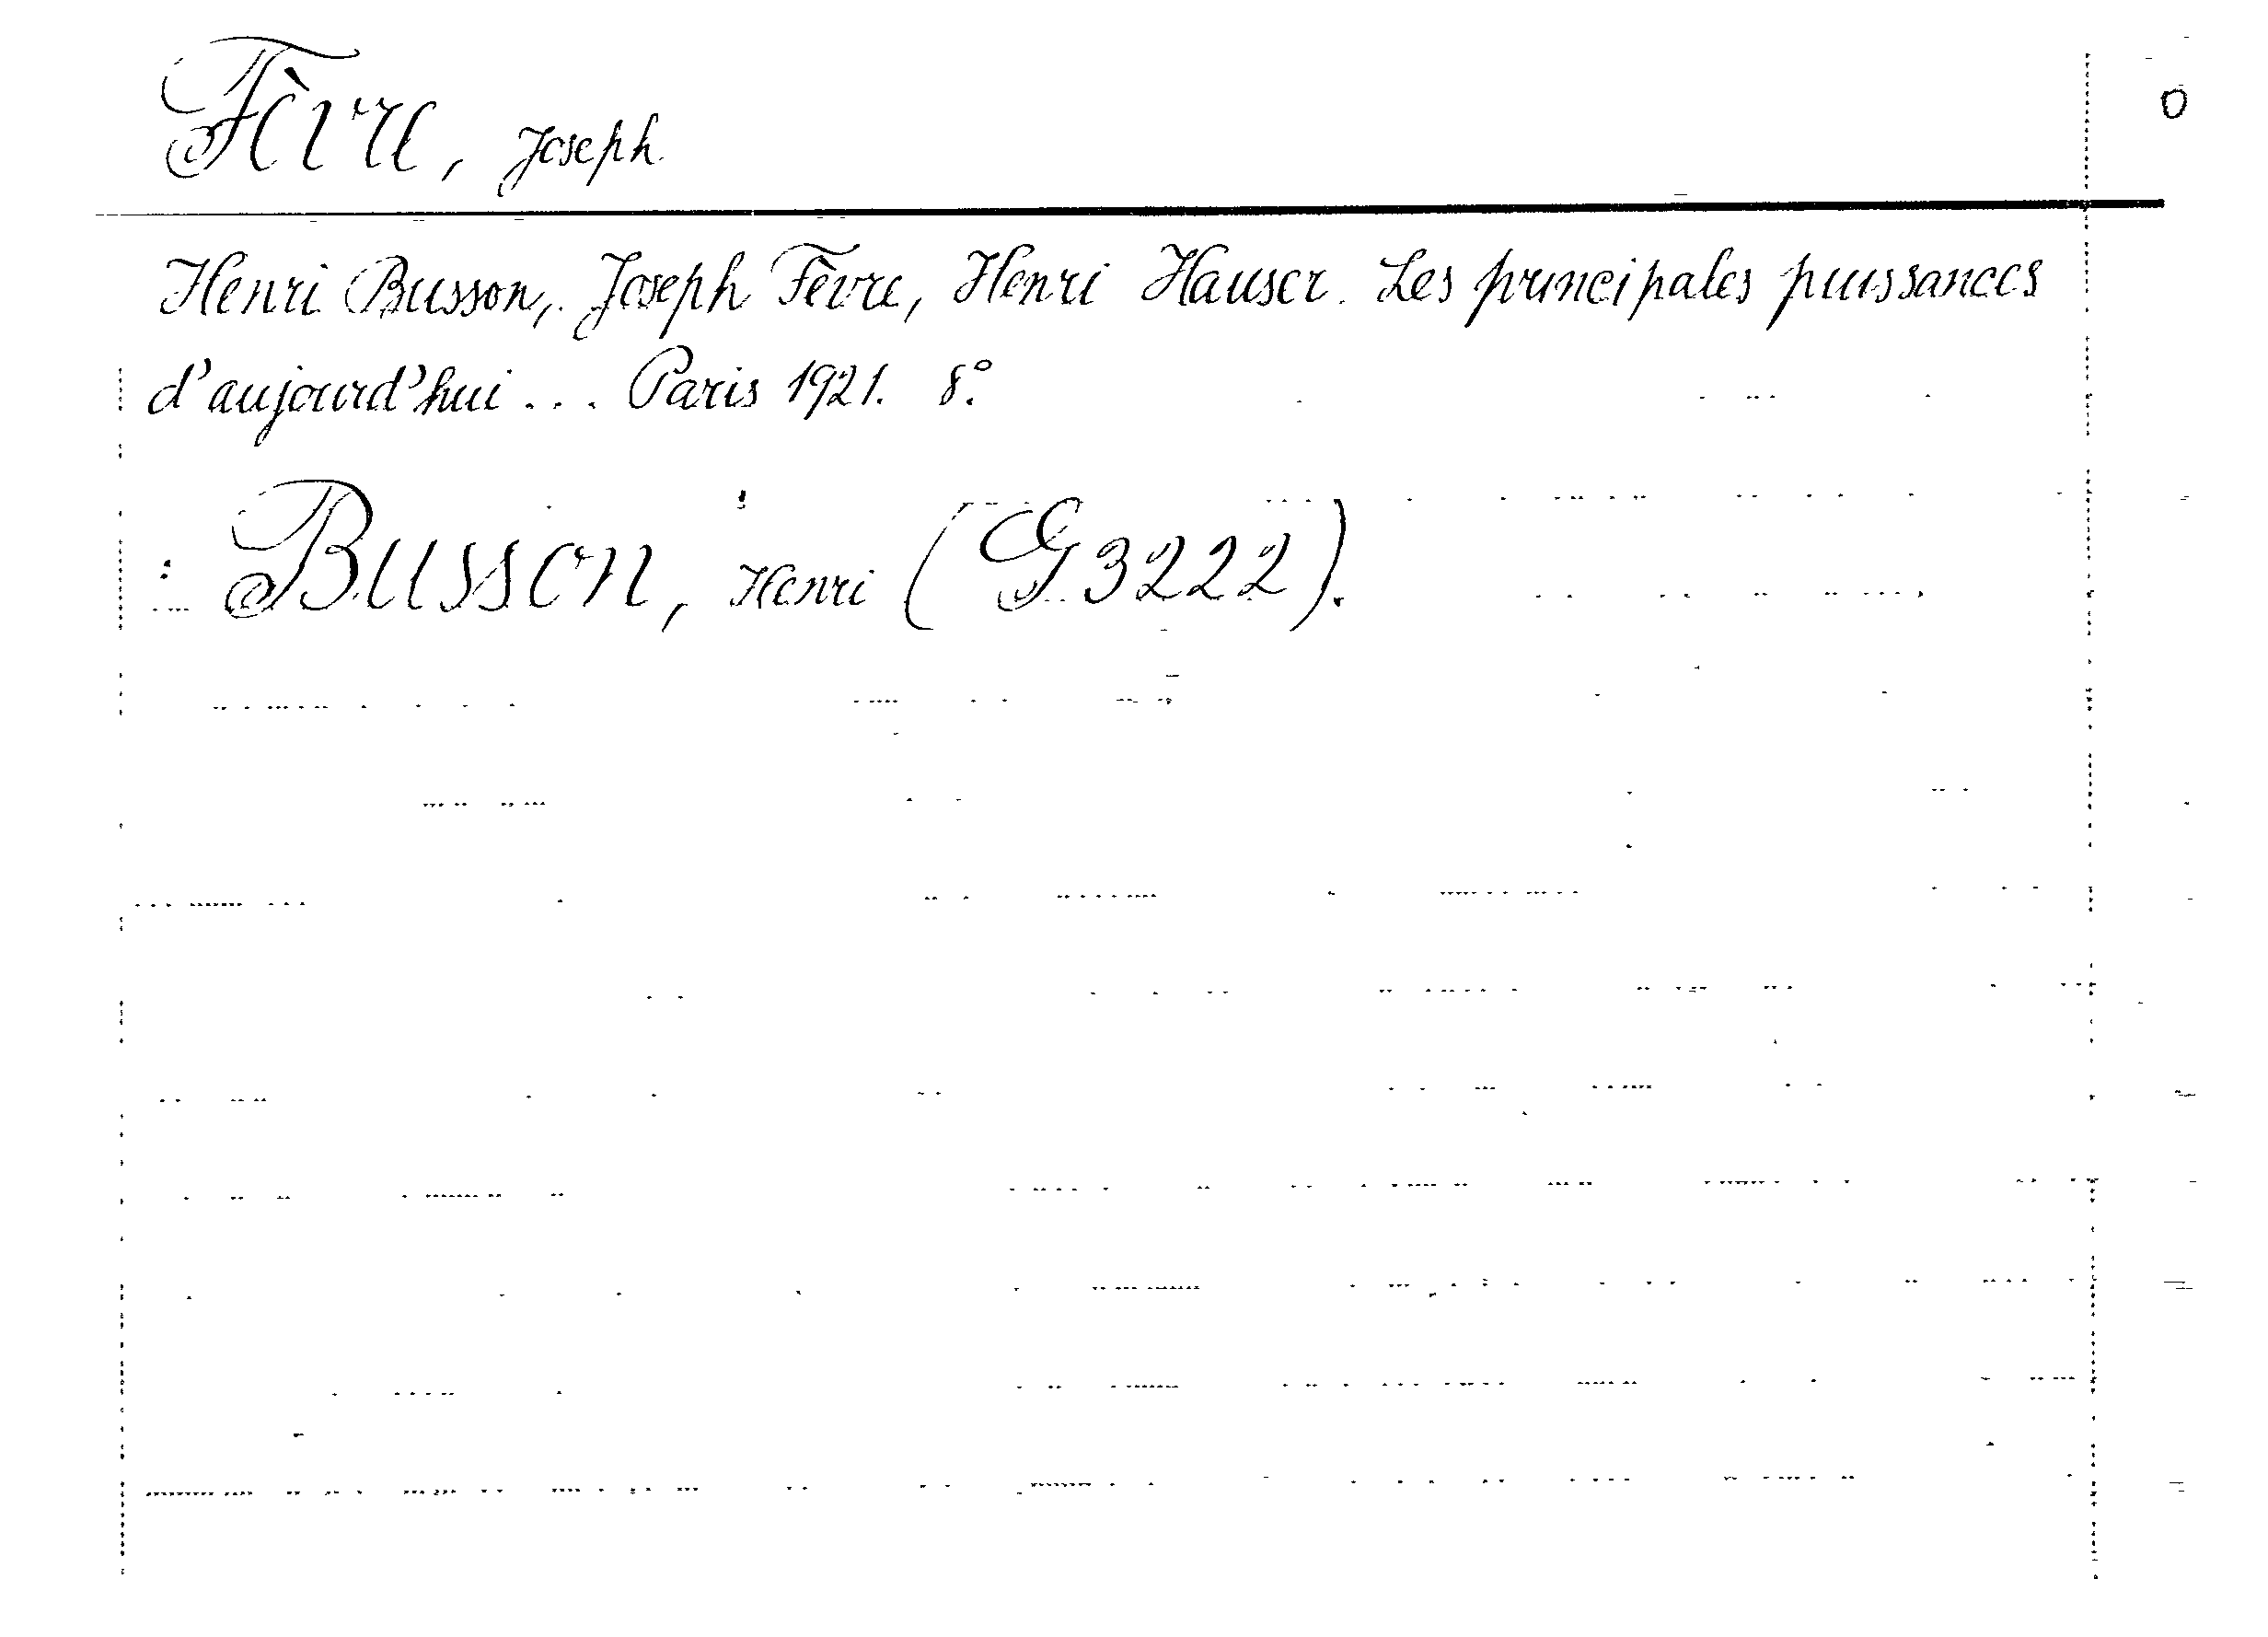 Fèvre, Joseph.
O
Henri Busson, Joseph Fèvre, Henri Hauser. Les principales puissances
d'aujourd'hui... Paris 1921. 8°.
: Busson, Henri (G 3222).